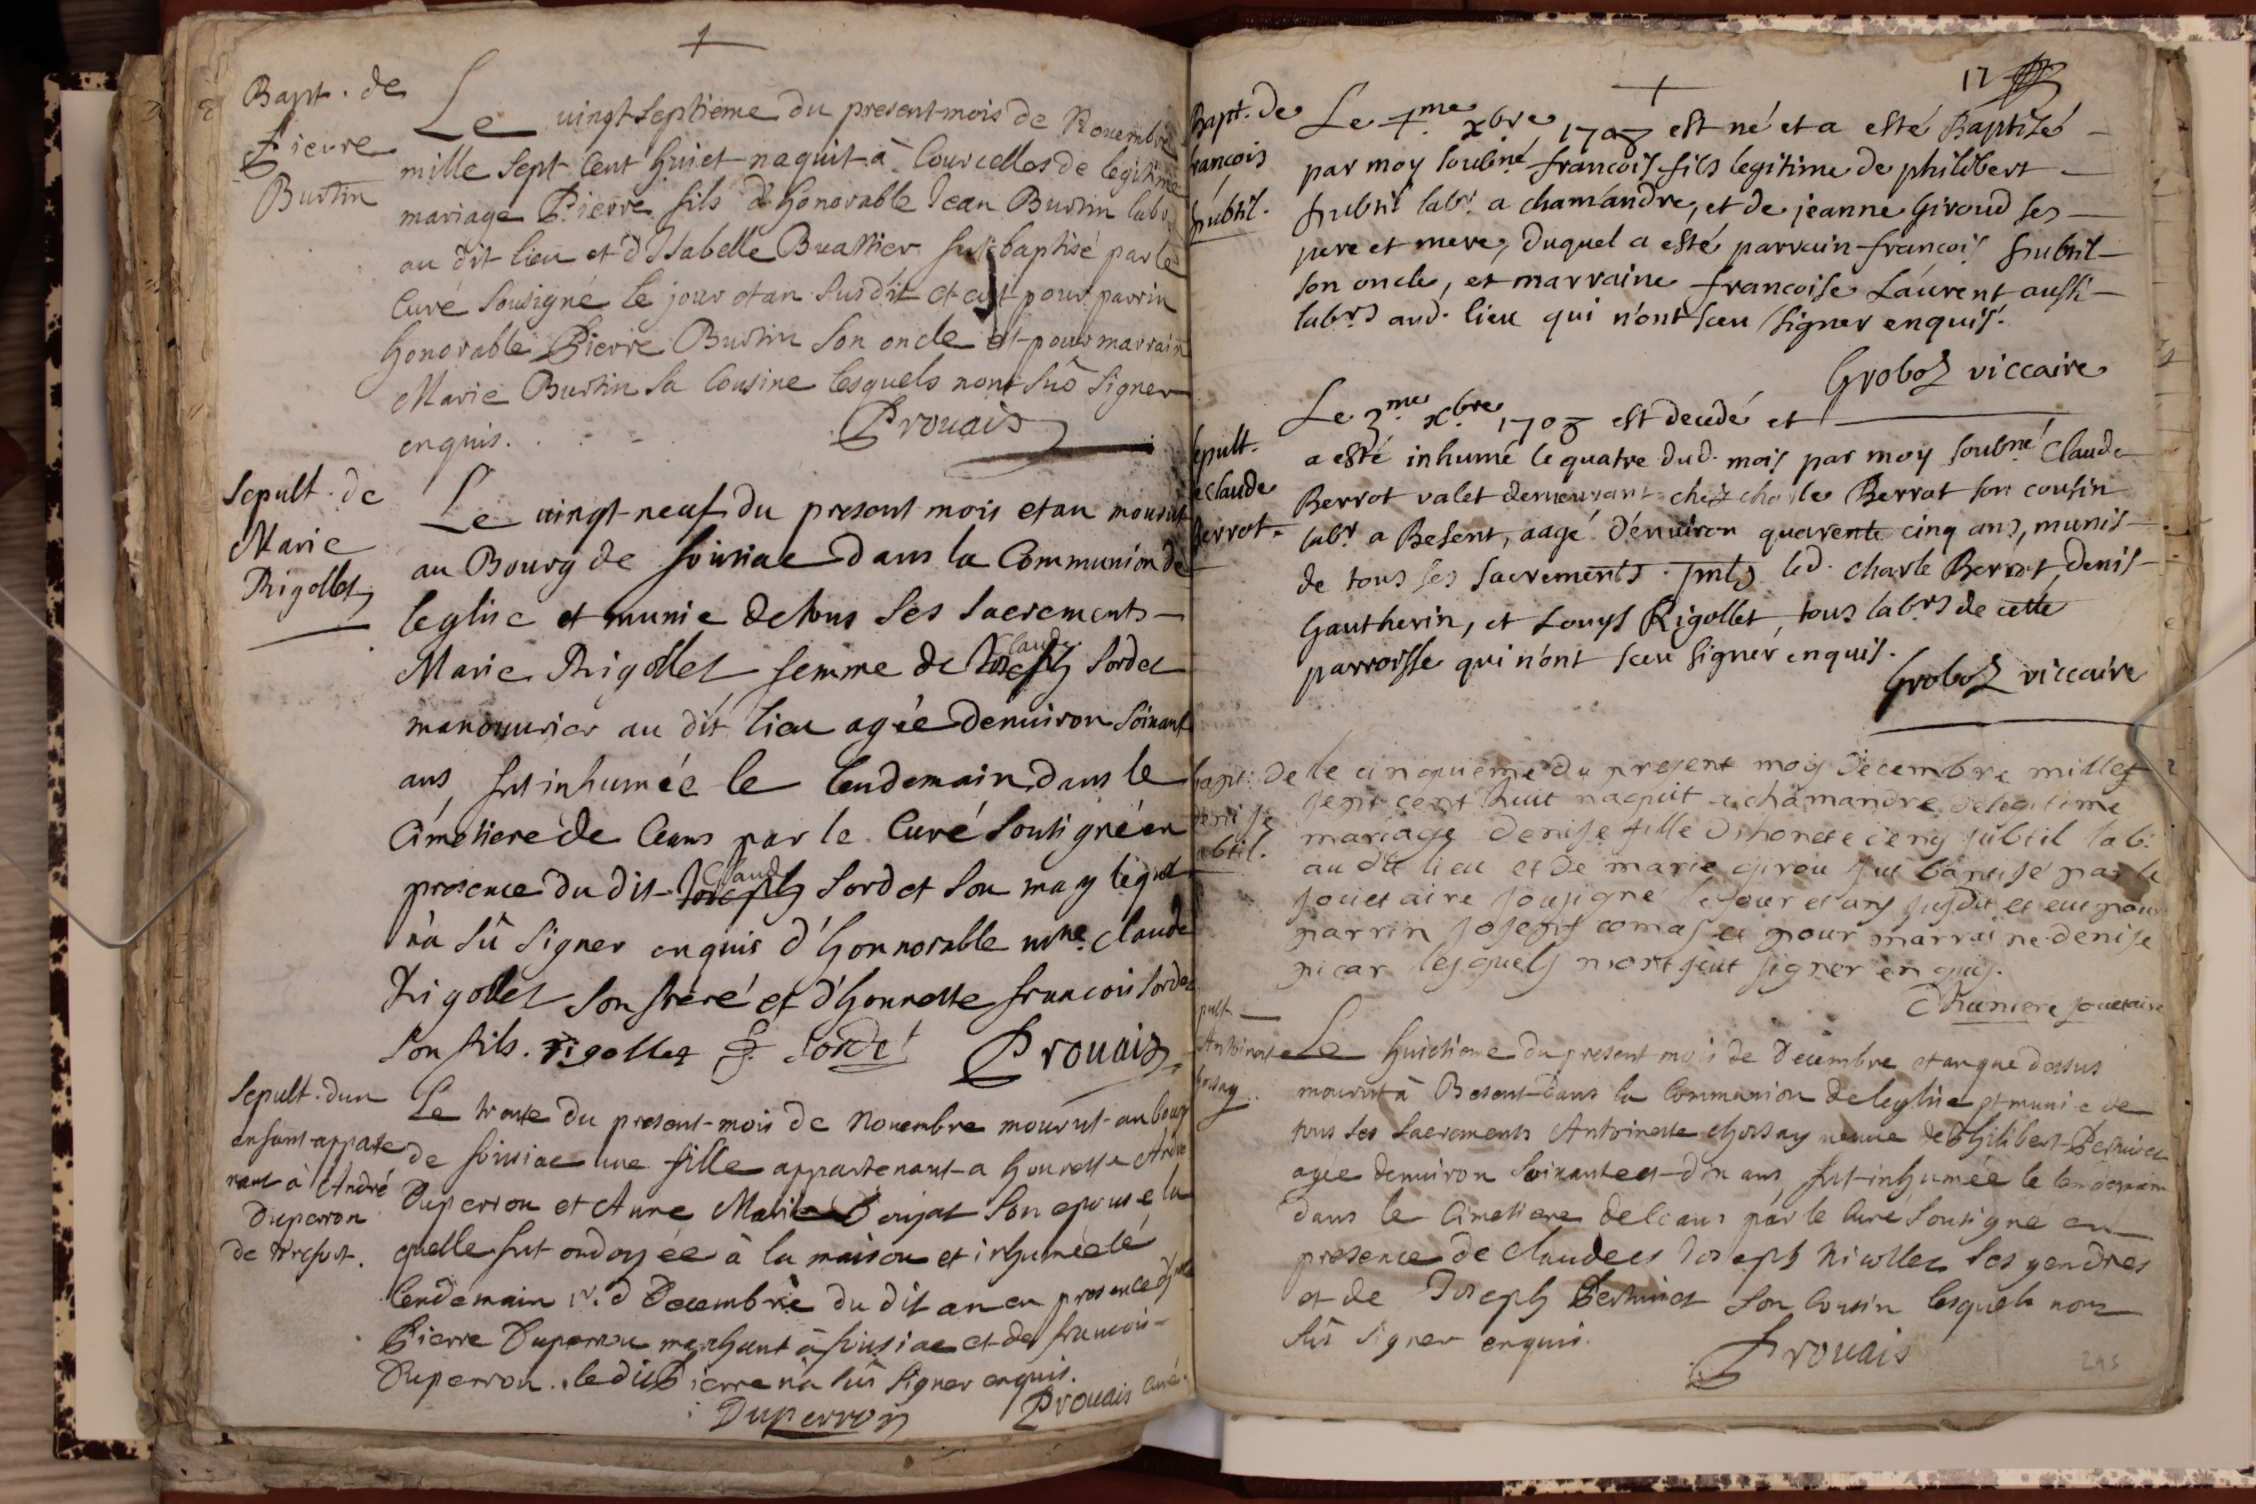 Bapt. de
Pierre
Burtin
Le vingt septieme du present mois de Novembre
mille sept cent huict naquit à Courcelles de legitime
mariage Pierre fils d'honorable Jean Burtin labr
au dit lieu et d'Isabelle fut baptisé par le
Curé sousigné le jour et an susdit et eut pour parrin
honorable Pierre Burtin son oncle et pour marraine
Marie Burtin sa Cousine lesquels nont sûs signer
enquis.
Prouais
Sepult. de
Marie
Rigollet
Le vingt neuf du present mois et an mourut
au Bourg de dans la Communion de
leglise et munie de tous ses sacrements
Marie Rigollet femme de Claude Sordet
manouurier au dit lieu agée denuiron soixante
ans, fut inhumée le lendemain dans le
Cimetiere de Ceans par le Curé soussigné en
presence du dit Claude Sordet son mary leque
n'a sû signer enquis d'honnorable me Claude
Rigollet son frere et d'honneste francois Sordet
son fils. rigollet f. Sordet Prouais
Sepult. dun
enfant apparte
nant à André
Duperron
de
Le trente du present mois de Nouembre mourut au bourg
de une fille appartenant a honneste André
Duperron et Anne Marie son epouse la
quelle fut ondoyée à la maison et inhumée le
lendemain 1r. d Decembre du dit an en presence de
Pierre Duperrou marchant à et de francois
Duperron. ledit Pierre n'a sûs signer enquis.
Duperron Prouais curé
17
Bapt. de
francois
subtil.
Le me xbre 1708 est né et a esté Baptisé
par moy soubné francois fils legitime de philibert
subtil labr a chamandre, et de jeanne Giroud ses
pere et mere, duquel a esté parrain francois subtil
son oncle, et marraine francoise Laurent aussi
labrs aud. lieu qui n'ont sceu signer enquis.
Groboz viccaire
sepult.
de claude
Berrot
Le 3me xbre 1708 est decedé et
a esté inhumé le quatre dud. mois par moy soubné Claude
Berrot valet demeurant chez charle Berrot son cousin
labr a Besent, aagé d'enuiron quarente cinq ans, munis
de tous ses sacrements. pnts led. charle Berrot, Denis
Gautherin, et Louys Rigollet, tous labrs de cette
parroisse qui n'ont sceu signer enquis.
Groboz viccaire
bapt: De
denise
subtil.
le cinquieme du present moy Decembre mille
sept cent huit naquit a chamandre de legitime
mariage denise fille d'honete subtil lab:
au dit lieu et de marie girou fut baptisé par le
soucetaire sousigné le jour et ans susdit et eut pour
parrin joseph comas et pour marraine denise
picar lesquels nont seut signer enquis.
Antoinette
Le huictieme du present mois de Decembre et an que dessus
mourut à Besent dans la Communion de leglise et munie de
tous ses Sacrements Antoinette veuve de Philibert
agée denuiron soixante et dix ans fut inhumée le lendemain
dans le Cimetiere de Ceans par le Curé sousigné en
presence de Claude et Joseph Nicollet ses gendres
et de Joseph son Cousin lesquels nont
sûs signer enquis.
Prouais